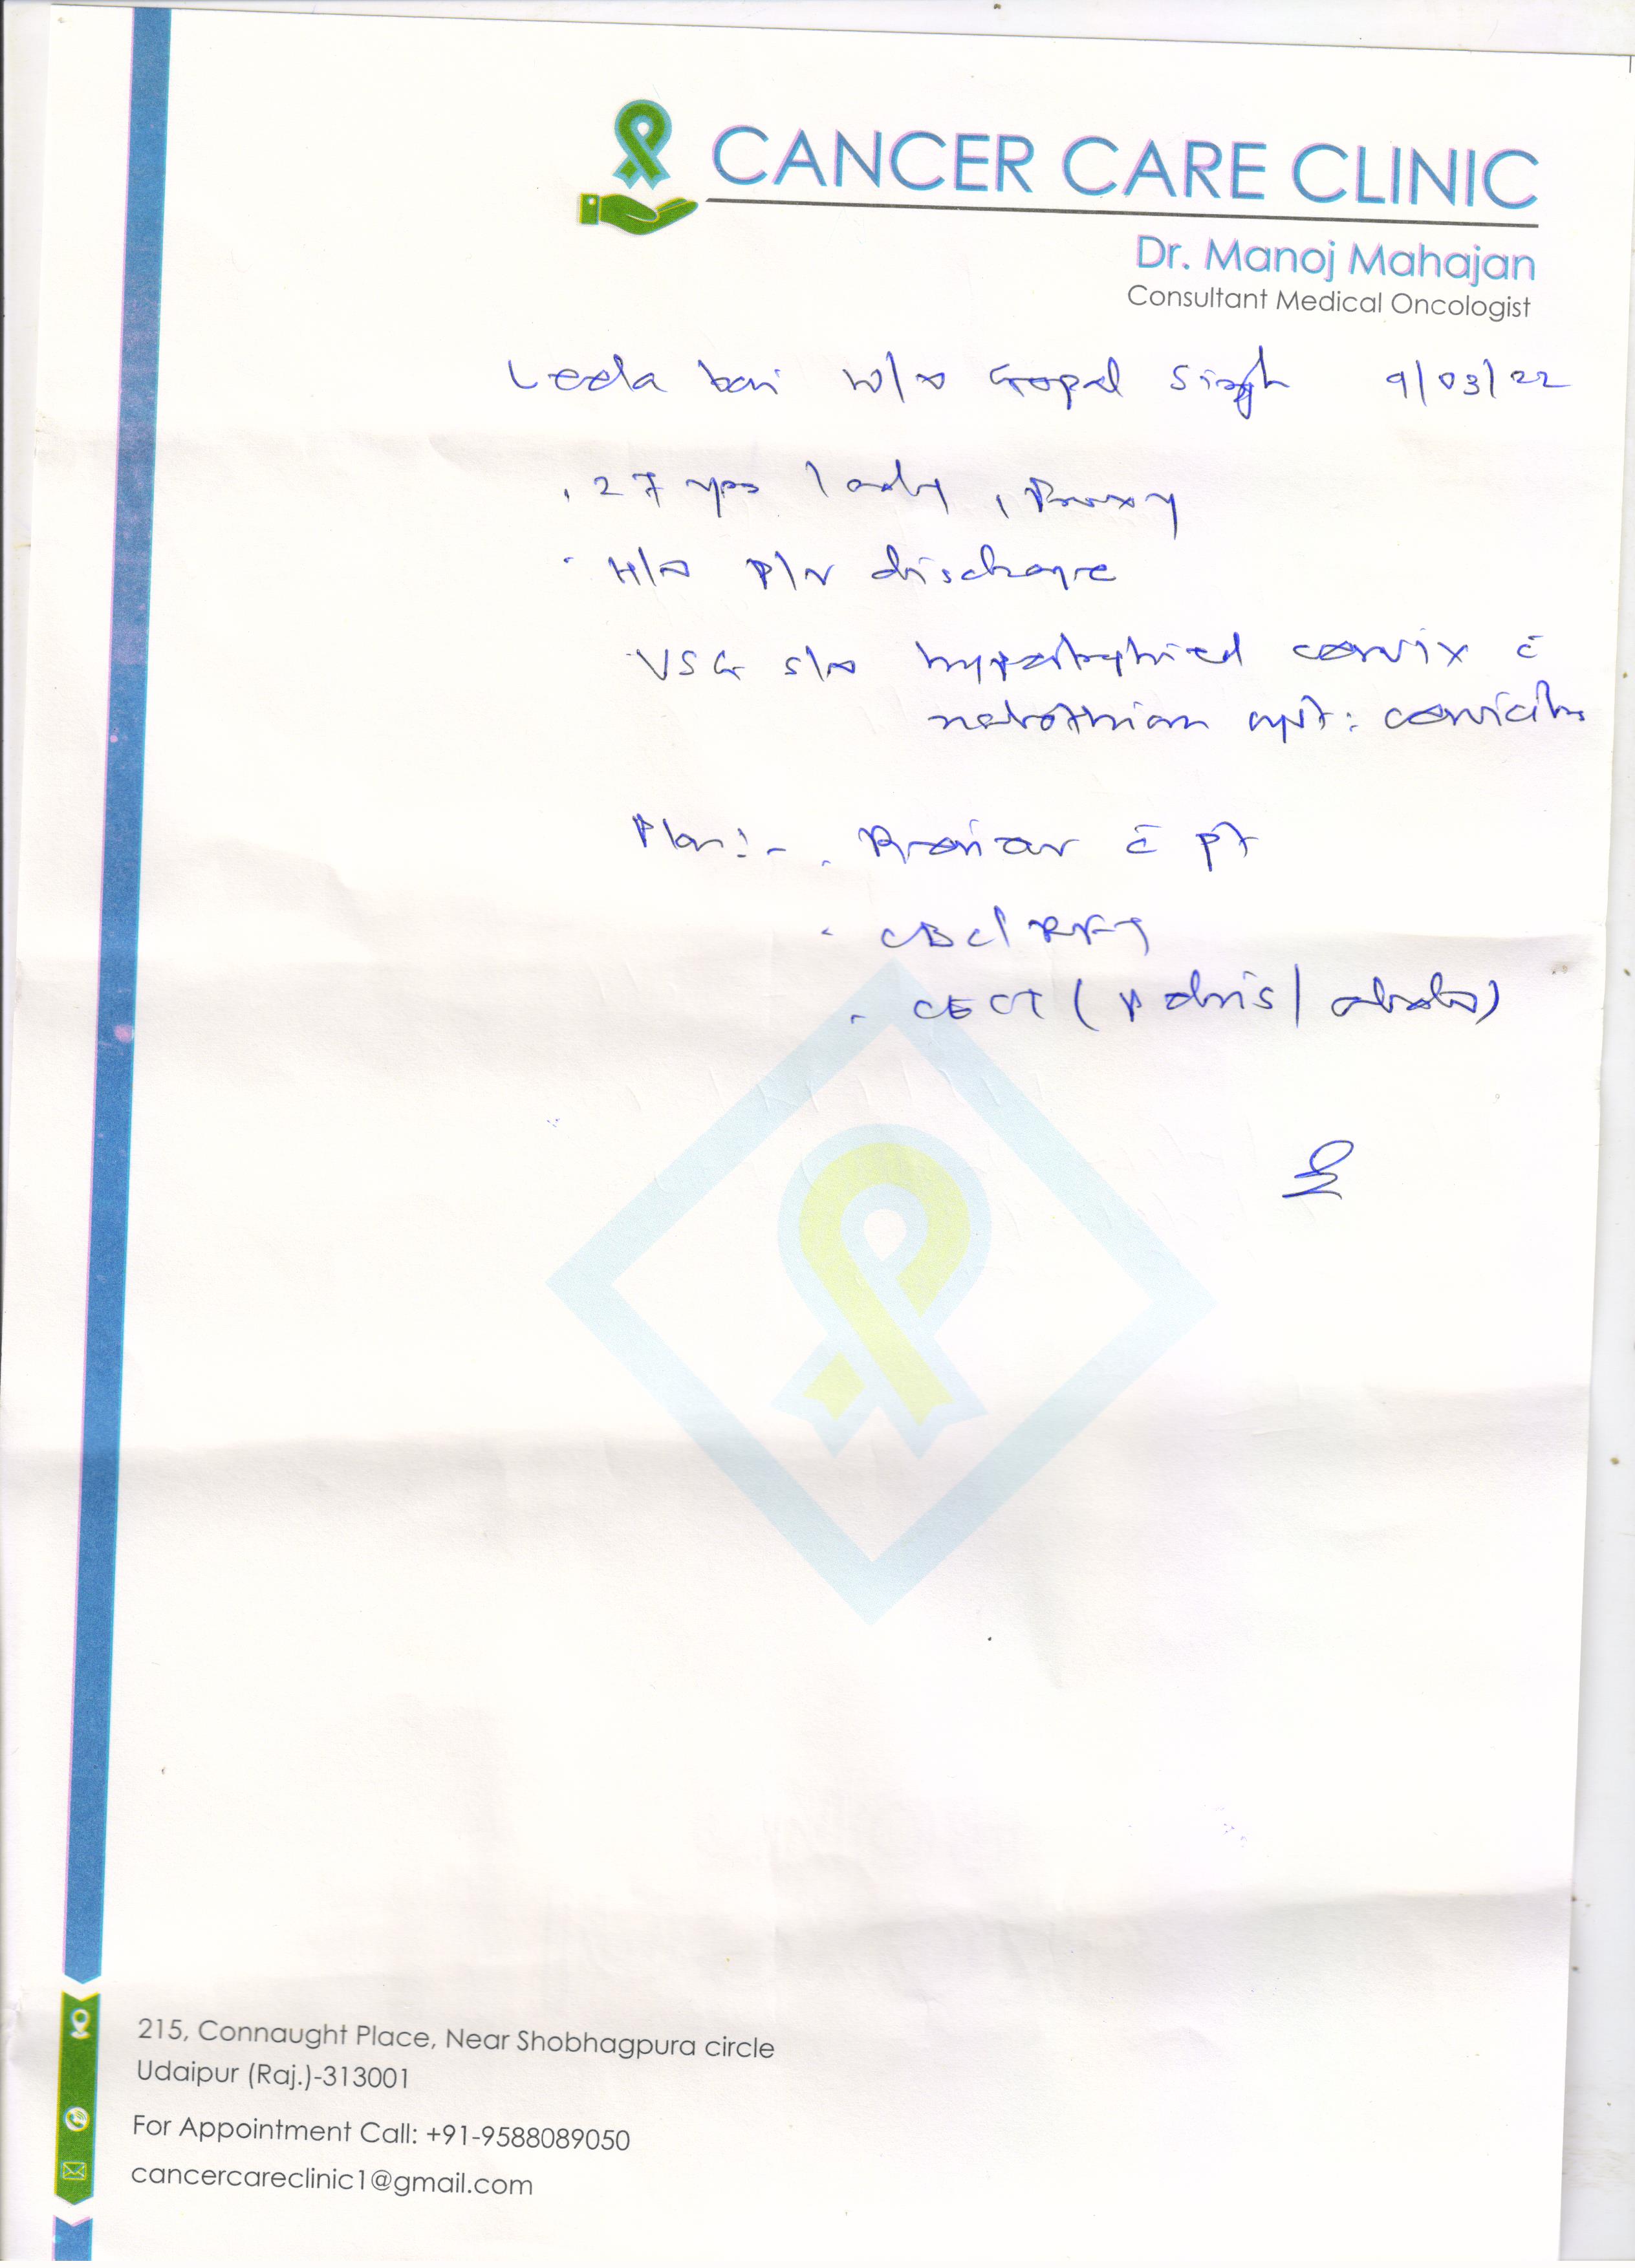 CANCER CARE CLINIC
Dr. Manoj Mahajan
Consultant Medical Oncologist
Leela bai W/o Gopal Singh 9/03/22
27 yrs lady, Proxy
H/o P/V discharge
USG s/o hypertrophied cervix c̄
nabothian cyst: cervicitis
Plan:- . Review c̄ pt
. CBC/RFT
. CECT (pelvis/abdo)
215, Connaught Place, Near Shobhagpura circle
Udaipur (Raj.)-313001
For Appointment Call: +91-9588089050
cancercareclinic1@gmail.com